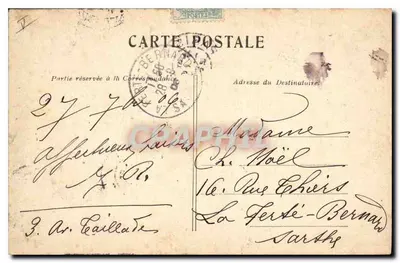 CARTE POSTALE
Partie réservée à la Correspondance
Adresse du Destinataire
27 7 06
affectueux
J. R.
3. Av. Taillade
Madame
Ch. Noël
16 Rue Thiers
La Ferté-Bernard
Sarthe